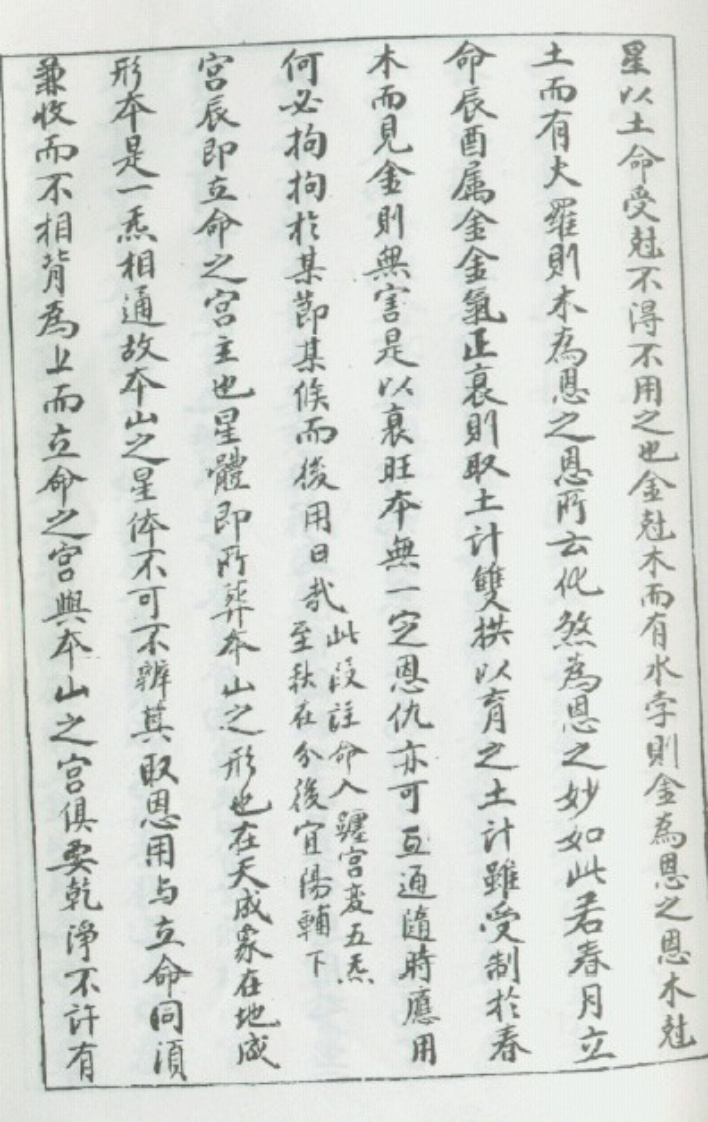 星以土命受尅不得不用之也金尅木而有水孛則金為恩之恩木尅
土而有火羅則木為恩之恩所云化煞為恩之妙如此若春月立
命辰酉属金金氣正衰則取土計雙拱以育之土計雖受制於春
木而見金則無害是以衰旺本無一定恩仇亦可互通隨時應用
何必拘拘於某節某候而後用日哉
此段註命入躔宮变五炁
至秋在分後宜陽輔下
宮辰即立命之宮主也星體即所葬本山之形也在天成象在地成
形本是一炁相通故本山之星体不可不辨其取恩用与立命同須
兼收而不相背為上而立命之宮與本山之宮俱要乾淨不許有